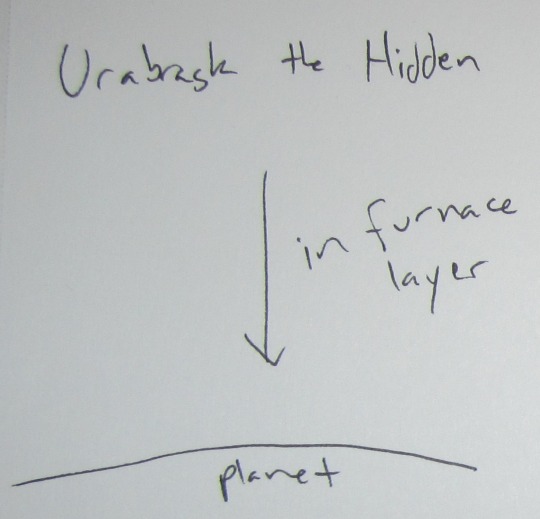 Urabrask the Hidden
in furnace
layer
planet